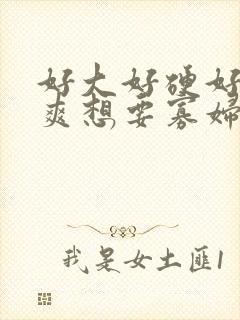 好大好硬好
爽想要寡婦
我是女土匪1